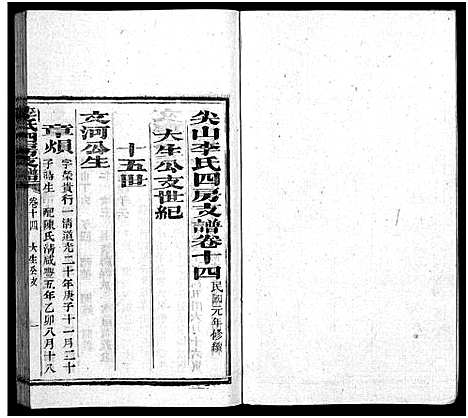 尖山李氏四房支譜卷十四 民國元年修續
大生公支世紀
十五世
文河公生
章熉 字榮貴行一清道光二十年庚子十一月二十
子時生 配陳氏清咸豐五年乙卯八月十八
李氏四房支譜 卷十四 大生公支 一